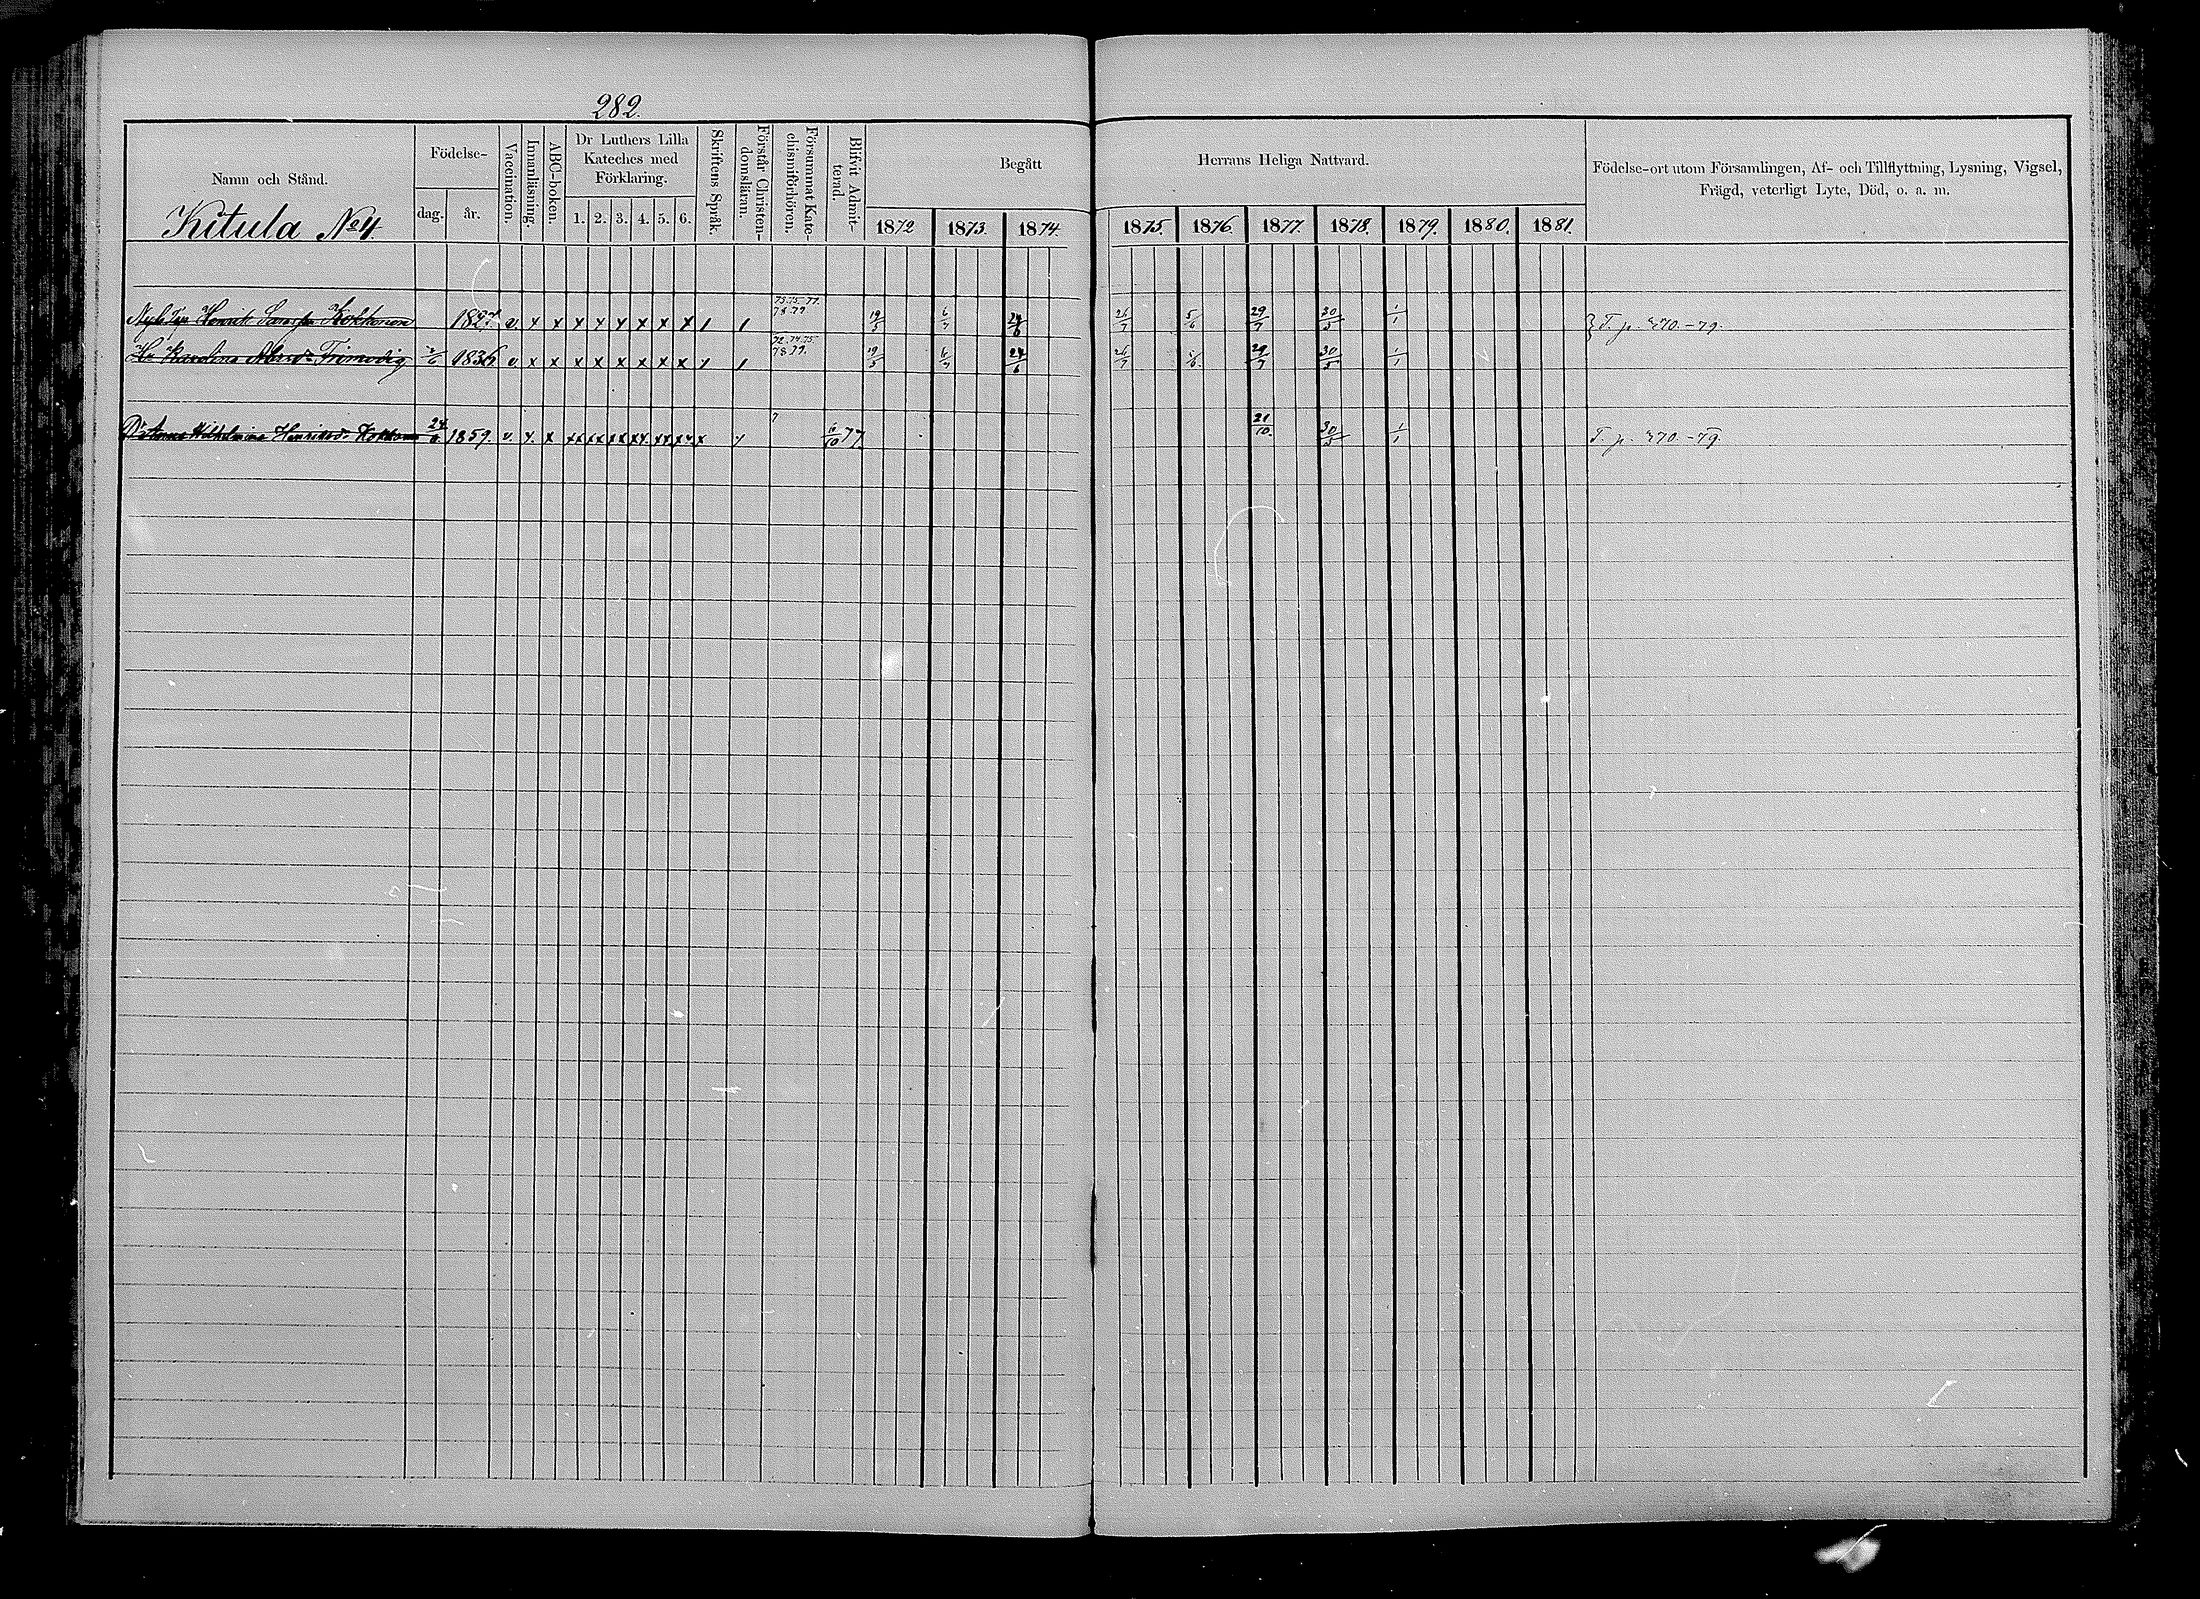 282.
Namn och Stånd.
Födelse-
dag. år.
Vaccination.
Innanläsning.
ABC-boken.
Dr Luthers Lilla
Kateches med
Förklaring.
1. 2. 3. 4. 5. 6.
Skriftens Språk.
Förstår Christen-
domsläran.
Försummat Kate-
chismiförhören.
Blifvit Admit-
terad.
Begått
Herrans Heliga Nattvard.
1872 1873. 1874. 1875. 1876. 1877. 1878. 1879. 1880. 1881.
Födelse-ort utom Församlingen, Af- och Tillflyttning, Lysning, Vigsel,
Frägd, veterligt Lyte, Död, o. a. m.
Kitula No 4.
Henrik Kokkonen v x x x x x x x x 73.75.77. 78.79 19/5 6/7 24/6 26/7 5/6 29/7 30/5 1/1 T. p. 270.-79.
Hu Karolina 1836 v x x x x x x x x 72.74.75. 78.79. 19/5 6/7 24/6 26/7 29/7 30/5 1/1
Dr Anna Wilhelmina Henriksdr Kokkonen 1859. v. x x 77. 21/10. 30/5 1/1 T. p. 270.-79.